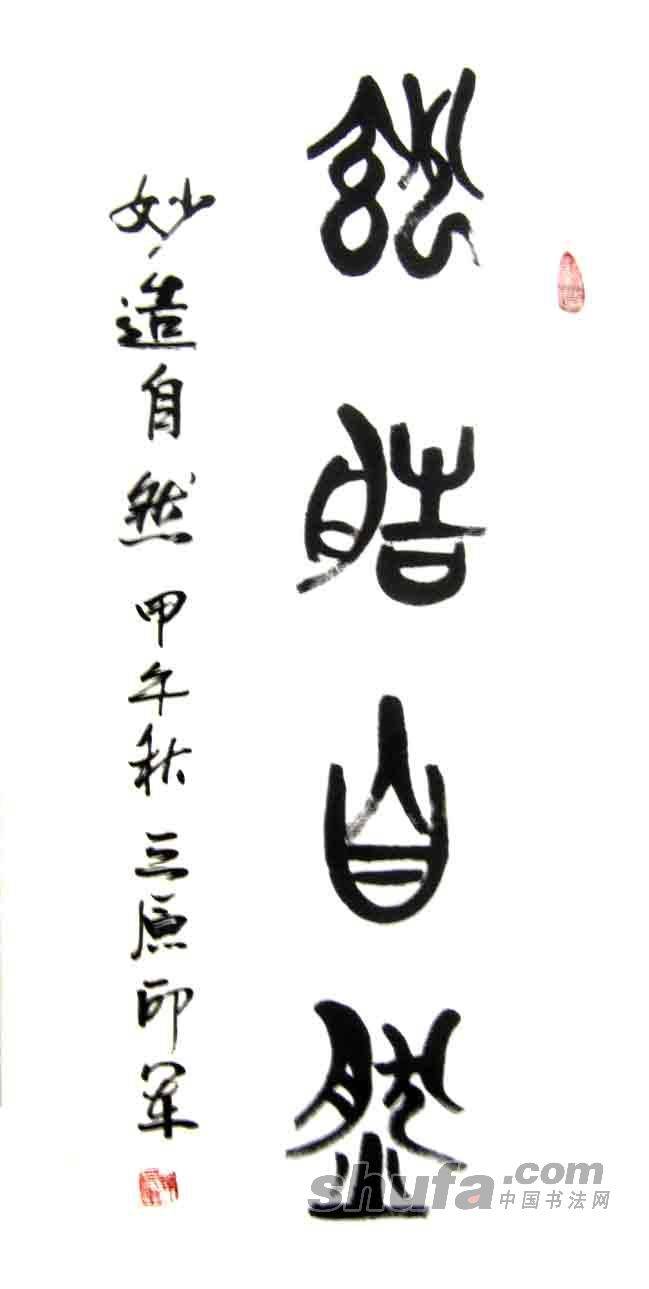 妙造自然
妙造自然 甲午秋 三原印军
shufa.com
中国书法网